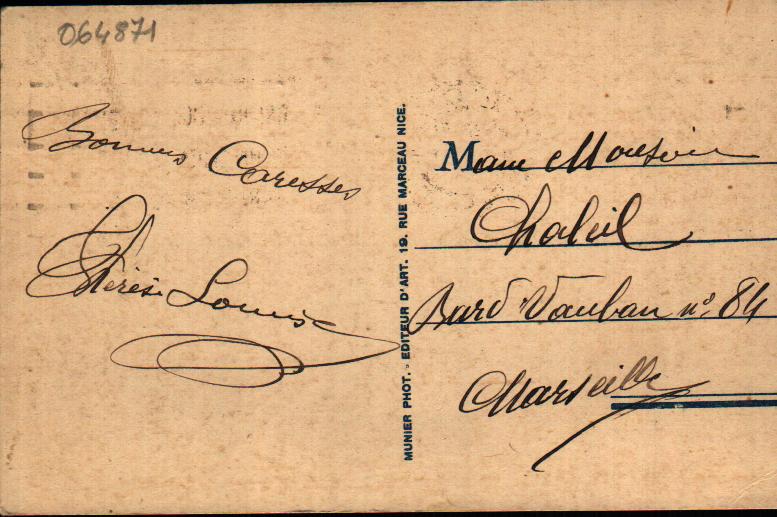 064871
Bonnes Caresses
Thérèse Louis
MUNIER PHOT. - EDITEUR D'ART. 19. RUE MARCEAU NICE.
Mame Monsieur
Chaleil
Bard Vauban nº 84
Marseille